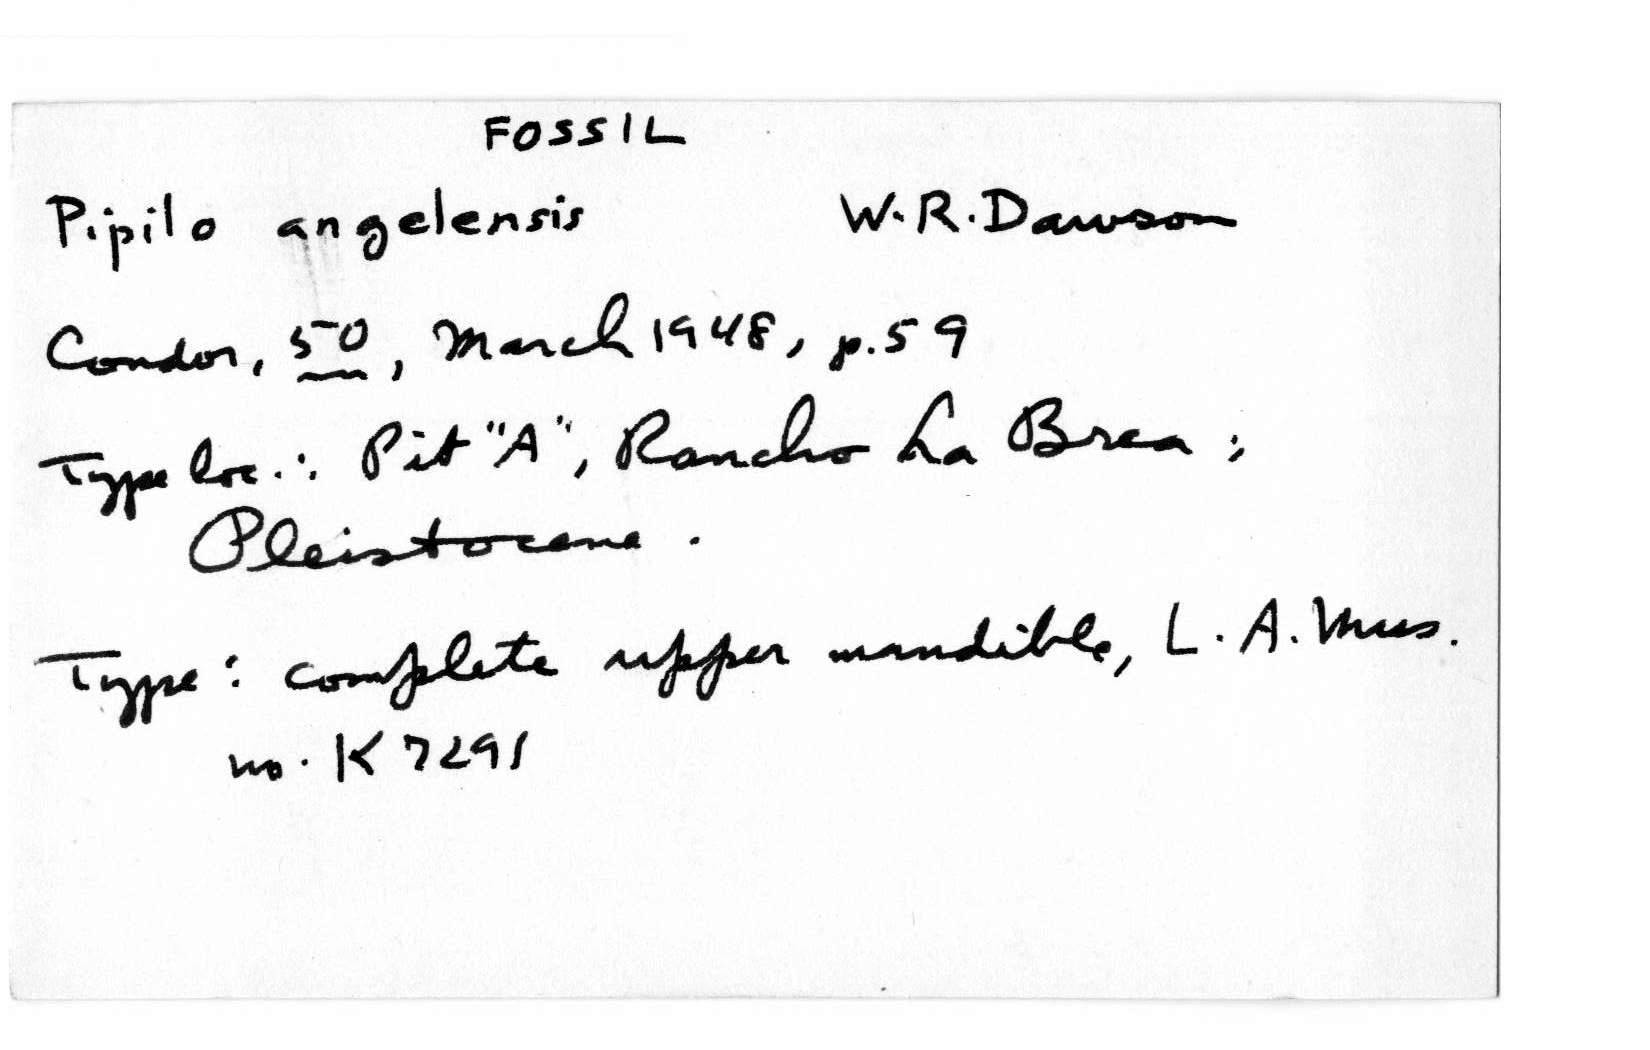 FOSSIL
Pipilo angelensis W.R.Dawson
Condor, 50, March 1948, p.59
Type loc.: Pit "A", Rancho La Brea;
Pleistocene.
Type: complete upper mandible, L.A. Mus.
no. K7291